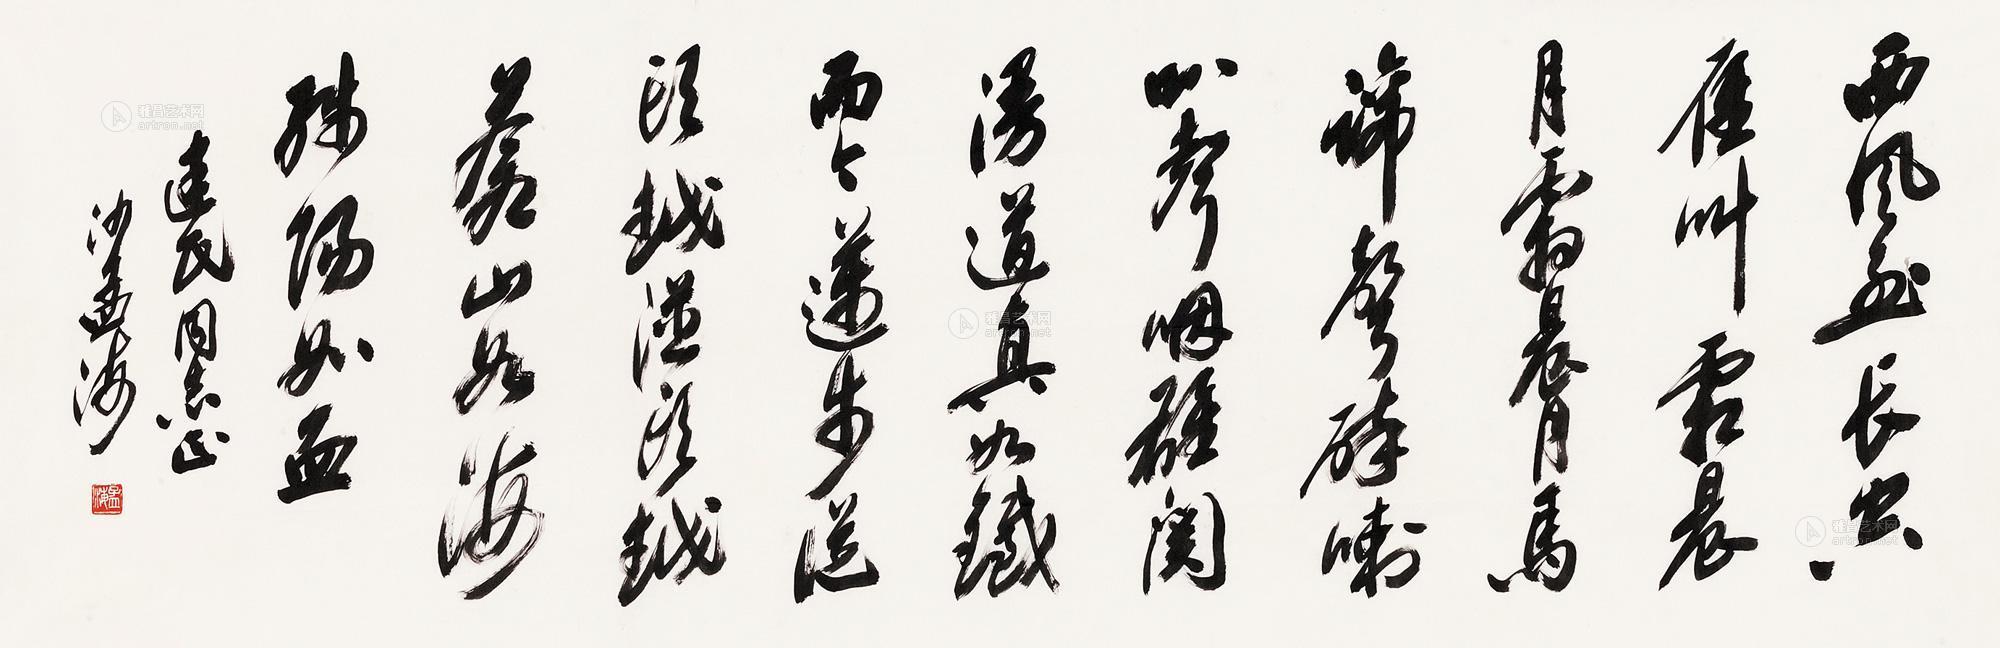 西風烈長空
雁叫霜晨
月霜晨月馬
蹄聲碎喇
叭聲咽雄關
漫道真如鐵
而今邁步從
頭越從頭越
蒼山如海
殘陽如血
建民同志正
沙孟海
孟海
雅昌艺术网
artron.net
雅昌艺术网
artron.net
雅昌艺术网
artron.net